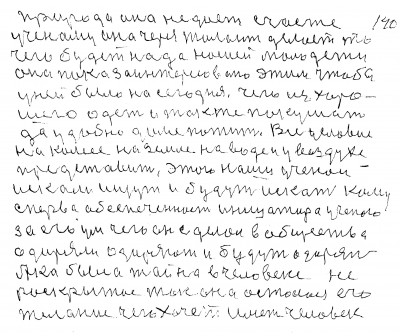 природа она не дает счастье 140
ученому она через талант делает то
чего будет надо нашей молодежи
она показаинтересовано этим чтоба
у ней было на сегодня. чего из хоро-
шего одет и также покушать
да удобно в доме пожить. Все условие
на колесе на земле на воде и у воздухе
представить, этого наши ученои
искали ищут и будут искать кому
сперва обеспеченность инициатора ученого
за его ум чего он сделал в общества
одаряли одиряют и будут одарят
Яка была тайна в человеке не
раскрытое так она осталась его
желание чего хочет. имет человек